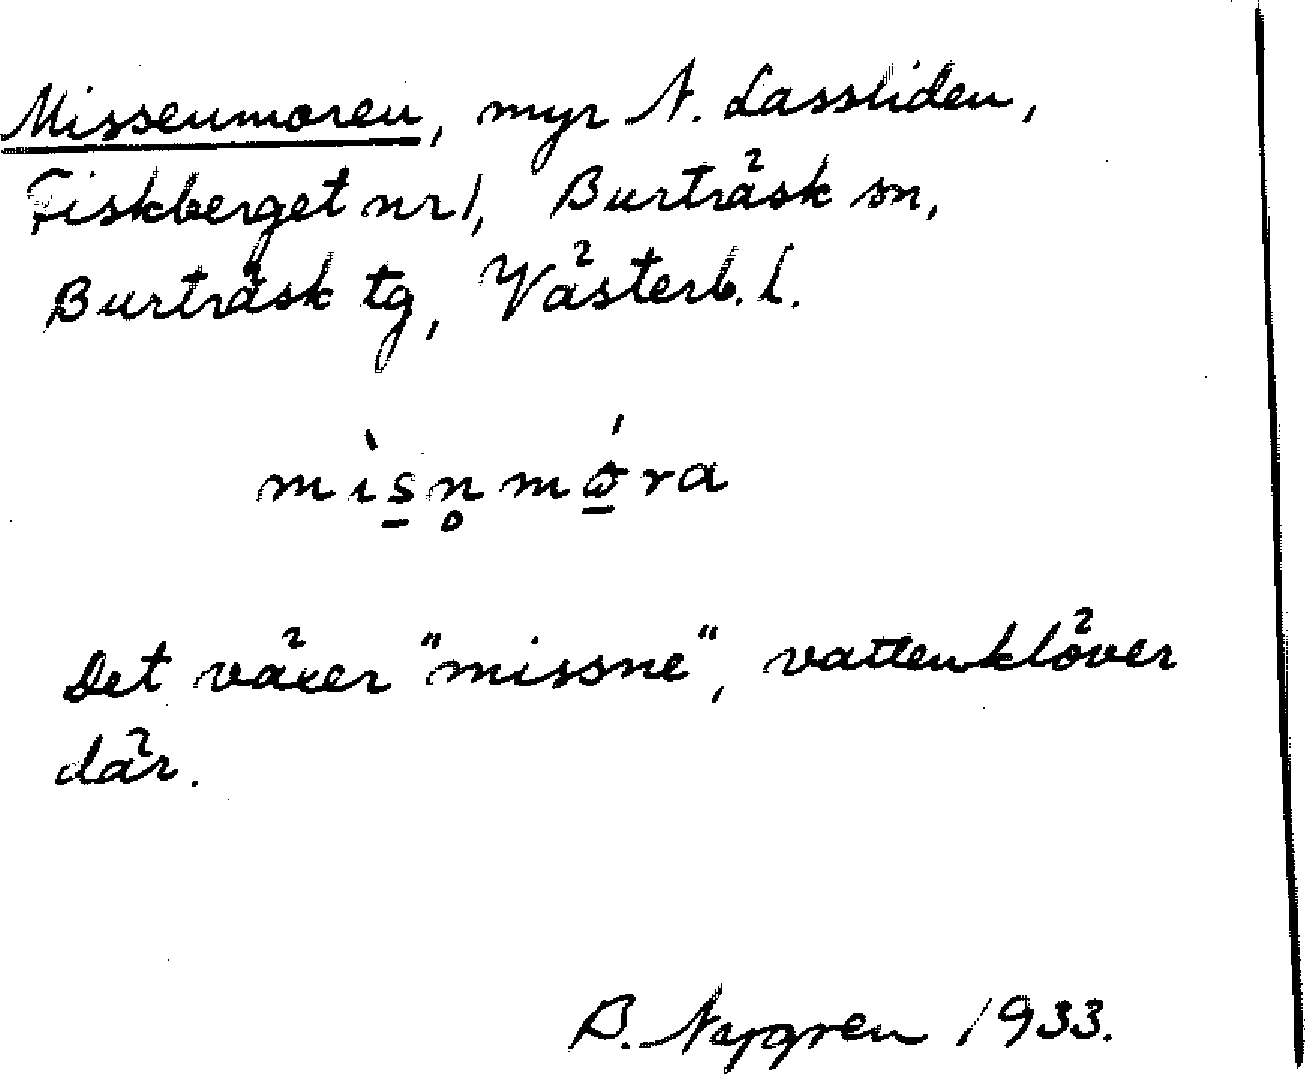 Missenmoren, myr N. Lassliden,
Fiskberget nr 1, Burträsk sn,
Burträsk tg, Västerb. l.
mìs̲n̥mó̲ra
Det växer "missne", vattenklöver
där.
B. 1933.